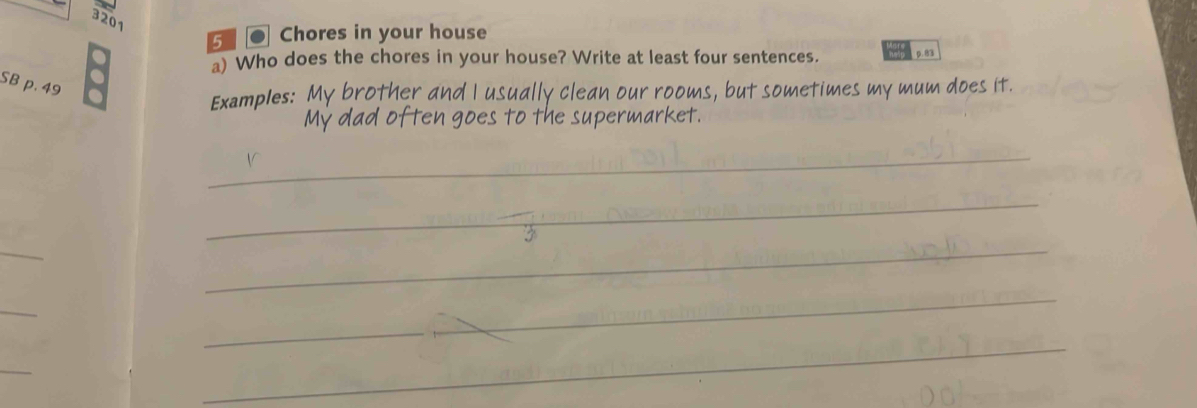 3201
SB p. 49
5 Chores in your house
a) Who does the chores in your house? Write at least four sentences.
More help p. 83
Examples: My brother and I usually clean our rooms, but sometimes my mum does it.
My dad often goes to the supermarket.